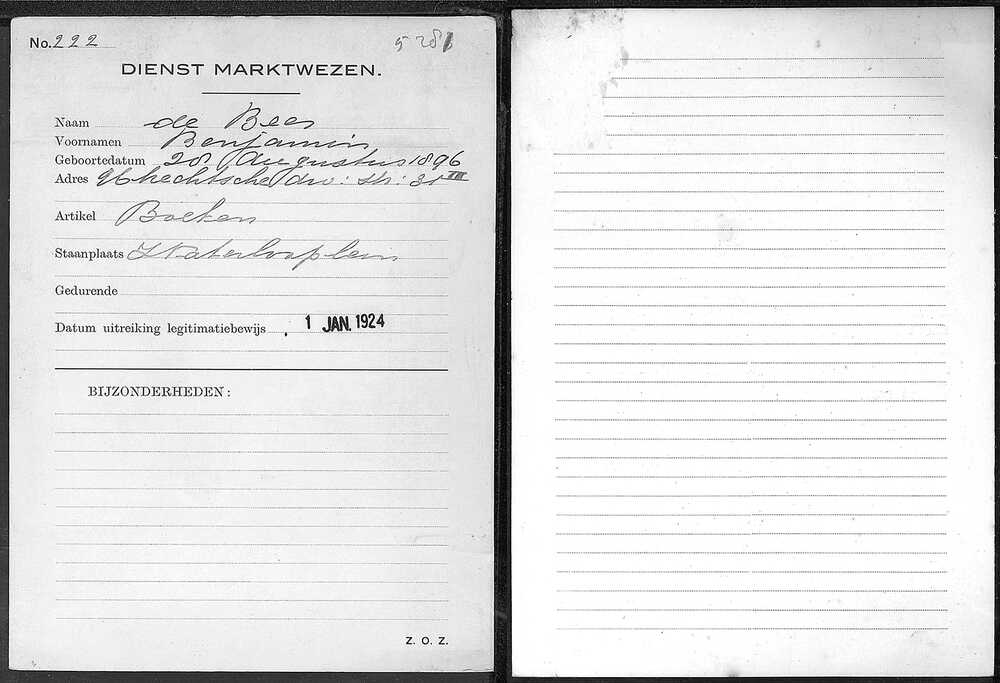 No. 222 5281
DIENST MARKTWEZEN.
Naam de Beer
Voornamen Benjamin
Geboortedatum 28 Augustus 1896
Adres Utrechtsche dw: str: 31 III
Artikel Boeken
Staanplaats Waterlooplein
Gedurende
Datum uitreiking legitimatiebewijs . 1 JAN. 1924
BIJZONDERHEDEN:
Z. O. Z.